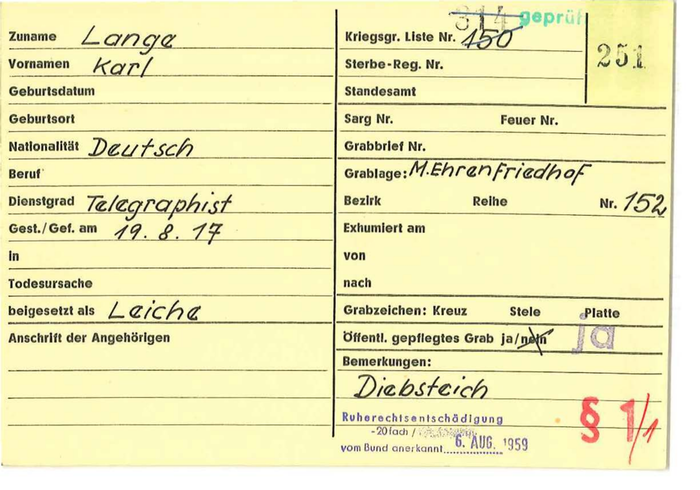 Zuname Lange
Vornamen Karl
Geburtsdatum
Geburtsort
Nationalität Deutsch
Beruf
Dienstgrad Telegraphist
Gest./Gef. am 19. 8. 17
in
Todesursache
beigesetzt als Leiche
Anschrift der Angehörigen
314 geprüf
Kriegsgr. Liste Nr. 150
251
Sterbe-Reg. Nr.
Standesamt
Sarg Nr. Feuer Nr.
Grabbrief Nr.
Grablage: M.Ehrenfriedhof
Bezirk Reihe Nr. 152
Exhumiert am
von
nach
Grabzeichen: Kreuz Stele Platte
Öffentl. gepflegtes Grab ja/nein ja
Bemerkungen:
Diebsteich
Ruherechtsentschädigung
-20fach /
vom Bund anerkannt 6. AUG. 1959
§ 1/1